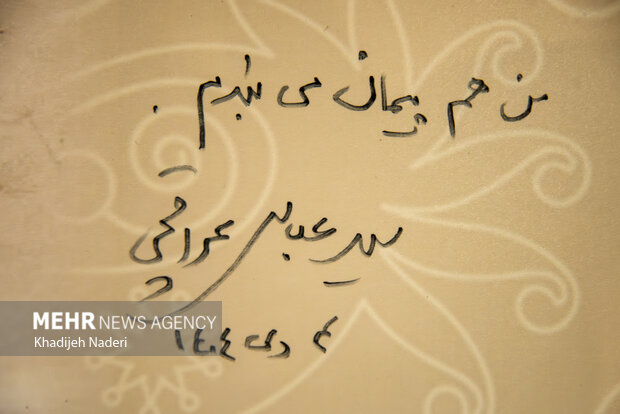 من هم پیمان می بندم .
سید عباس عراقچی
۳ دی ۱۴۰۴
MEHR NEWS AGENCY
Khadijeh Naderi